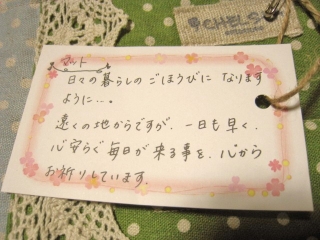 マット
日々の暮らしのごほうびになります
ように…。
遠くの地からですが、一日も早く、
心安らぐ毎日が来る事を、心から
お祈りしています。